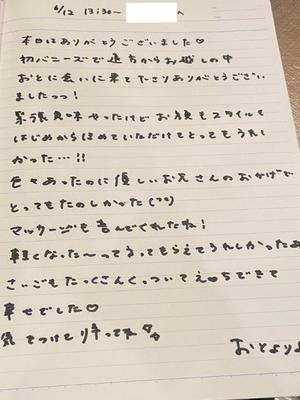 6/12 13:30〜 へ
本日はありがとうございました♡
初バニーズで遠方からお越しの中
おとに会いに来て下さりありがとうござい
ましたっっ!
緊張気味やったけどお顔もスタイルも
はじめからほめていただけてとってもうれし
かった…!!
色々あったのに優しいお兄さんのおかげで
とってもたのしかった
マッサージも喜んでくれたね!
軽くなった〜ってゆってもらえてうれしかったぁ
さいごもたっくさんくっついてえっちできて
幸せでした♡
気をつけて帰ってね
おとより